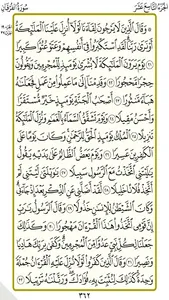 سُورَةُ الفُرْقَانِ
الجُزْءُ التَّاسِعَ عَشَرَ
۞ وَقَالَ ٱلَّذِينَ لَا يَرْجُونَ لِقَآءَنَا لَوْلَآ أُنزِلَ عَلَيْنَا ٱلْمَلَٰٓئِكَةُ
أَوْ نَرَىٰ رَبَّنَا ۗ لَقَدِ ٱسْتَكْبَرُوا۟ فِىٓ أَنفُسِهِمْ وَعَتَوْ عُتُوًّا كَبِيرًا
٢١ يَوْمَ يَرَوْنَ ٱلْمَلَٰٓئِكَةَ لَا بُشْرَىٰ يَوْمَئِذٍ لِّلْمُجْرِمِينَ وَيَقُولُونَ
حِجْرًا مَّحْجُورًا ٢٢ وَقَدِمْنَآ إِلَىٰ مَا عَمِلُوا۟ مِنْ عَمَلٍ فَجَعَلْنَٰهُ
هَبَآءً مَّنثُورًا ٢٣ أَصْحَٰبُ ٱلْجَنَّةِ يَوْمَئِذٍ خَيْرٌ مُّسْتَقَرًّا
وَأَحْسَنُ مَقِيلًا ٢٤ وَيَوْمَ تَشَقَّقُ ٱلسَّمَآءُ بِٱلْغَمَٰمِ وَنُزِّلَ ٱلْمَلَٰٓئِكَةُ
تَنزِيلًا ٢٥ ٱلْمُلْكُ يَوْمَئِذٍ ٱلْحَقُّ لِلرَّحْمَٰنِ ۚ وَكَانَ يَوْمًا عَلَى
ٱلْكَٰفِرِينَ عَسِيرًا ٢٦ وَيَوْمَ يَعَضُّ ٱلظَّالِمُ عَلَىٰ يَدَيْهِ يَقُولُ
يَٰلَيْتَنِى ٱتَّخَذْتُ مَعَ ٱلرَّسُولِ سَبِيلًا ٢٧ يَٰوَيْلَتَىٰ لَيْتَنِى لَمْ
أَتَّخِذْ فُلَانًا خَلِيلًا ٢٨ لَّقَدْ أَضَلَّنِى عَنِ ٱلذِّكْرِ بَعْدَ إِذْ جَآءَنِى ۗ
وَكَانَ ٱلشَّيْطَٰنُ لِلْإِنسَٰنِ خَذُولًا ٢٩ وَقَالَ ٱلرَّسُولُ يَٰرَبِّ
إِنَّ قَوْمِى ٱتَّخَذُوا۟ هَٰذَا ٱلْقُرْءَانَ مَهْجُورًا ٣٠ وَكَذَٰلِكَ
جَعَلْنَا لِكُلِّ نَبِىٍّ عَدُوًّا مِّنَ ٱلْمُجْرِمِينَ ۗ وَكَفَىٰ بِرَبِّكَ هَادِيًا
وَنَصِيرًا ٣١ وَقَالَ ٱلَّذِينَ كَفَرُوا۟ لَوْلَا نُزِّلَ عَلَيْهِ ٱلْقُرْءَانُ جُمْلَةً
وَٰحِدَةً ۚ كَذَٰلِكَ لِنُثَبِّتَ بِهِۦ فُؤَادَكَ ۖ وَرَتَّلْنَٰهُ تَرْتِيلًا ٣٢
٣٦٢